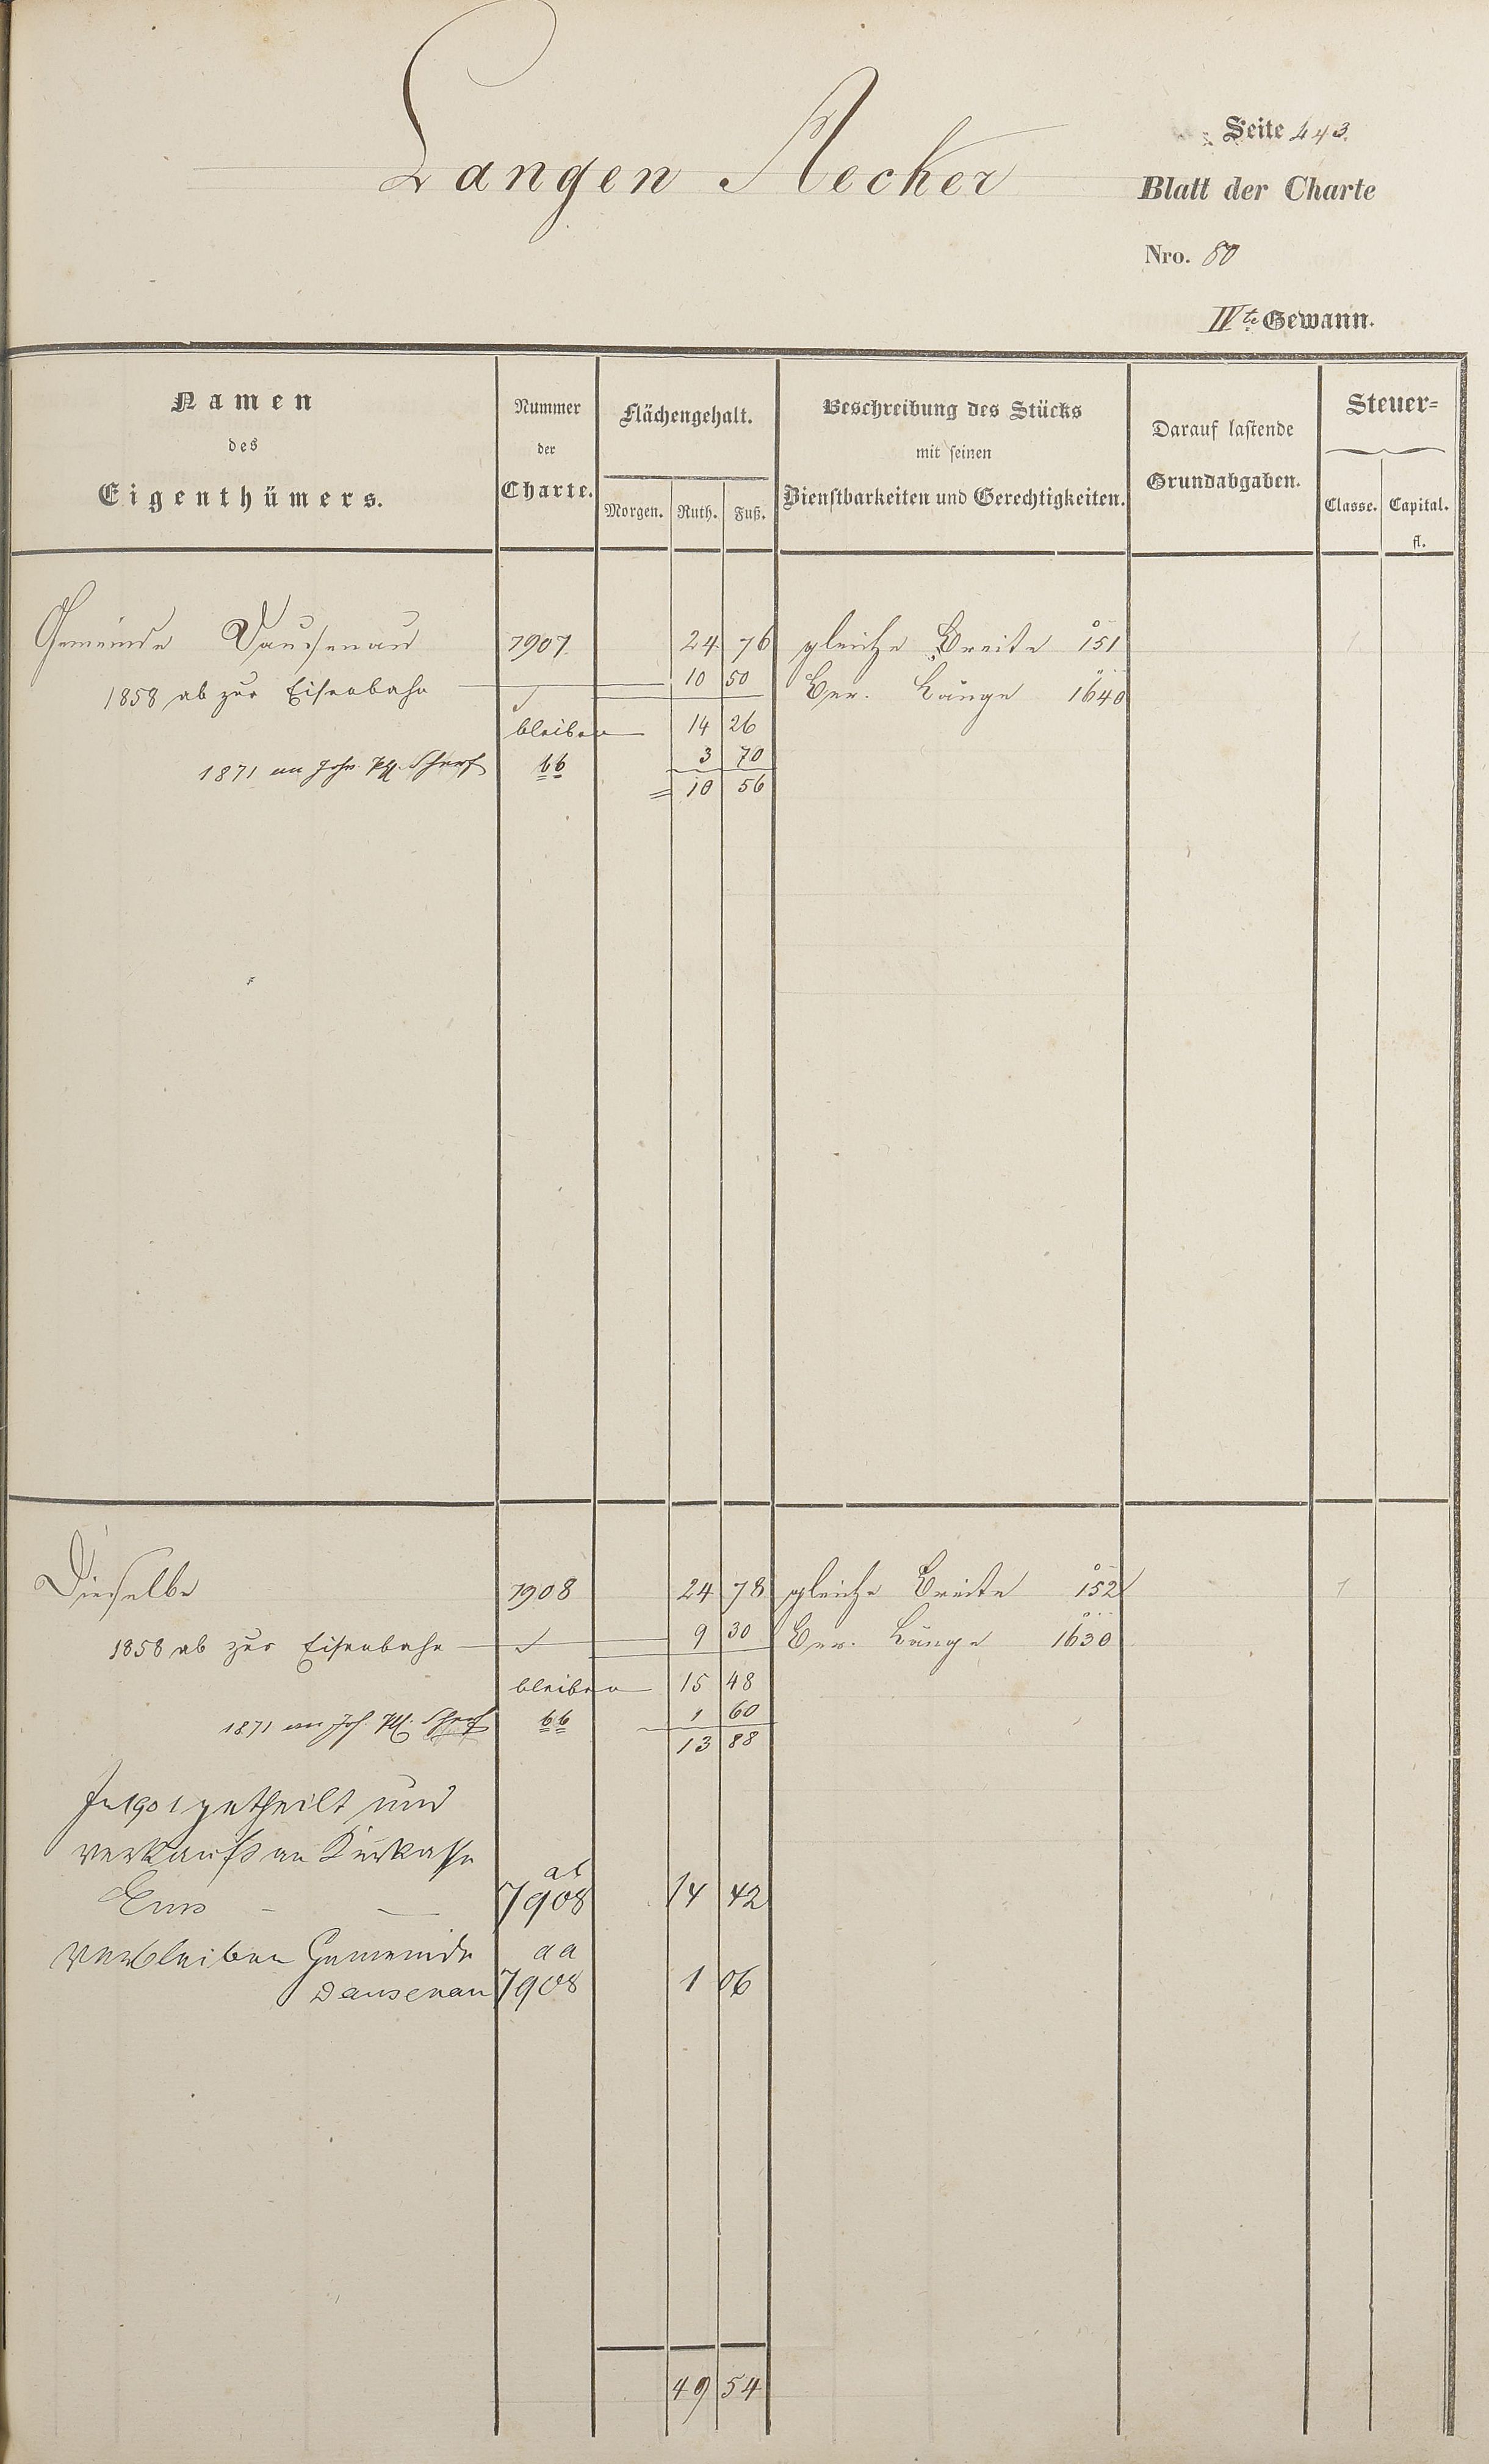 Langen Aecker
Seite 443.
Blatt der Charte
Nro. 80
IV te Gewann.
Namen
des
Eigenthümers.
Nummer
der
Charte.
Flächengehalt.
Morgen. Ruth. Fuß.
Beschreibung des Stücks
mit seinen
Dienstbarkeiten und Gerechtigkeiten.
Darauf lastende
Grundabgaben.
Steuer-
Classe. Capital.
fl.
Gemeinde Dausenau 7907. 24 76 gleiche Breite 151 1
1858 ab zur Eisenbahn 10 50 Ver. Länge 1640
bleiben 14 26
1871 an Joh. Ph. Scherf bb 3 70
= 10 56
Dieselbe 7908 24 78 gleiche Breite 152 1
1858 ab zur Eisenbahn 9 30 Ver. Länge 1630
bleiben 15 48
1871 an Joh. Ph. Scherf bb 1 60
13 88
In 1901 getheilt und
verkauft an Kurkasse
ab
Ems - — 7908 14 42
verbleiben Gemeinde aa
Dausenau 7908 1 06
49 54